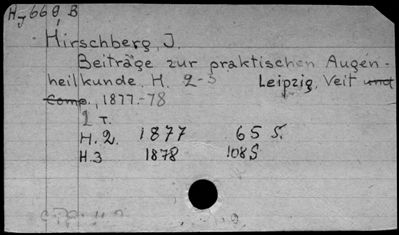 H, 669, B
Hirschberg, J.
Beiträge zur praktischen Augen-
heilkunde, H. 2-3 Leipzig, Veit und
Comp., 1877.-78
2 T.
H. 2. 1877 65 S.
H. 3 1878 108 S